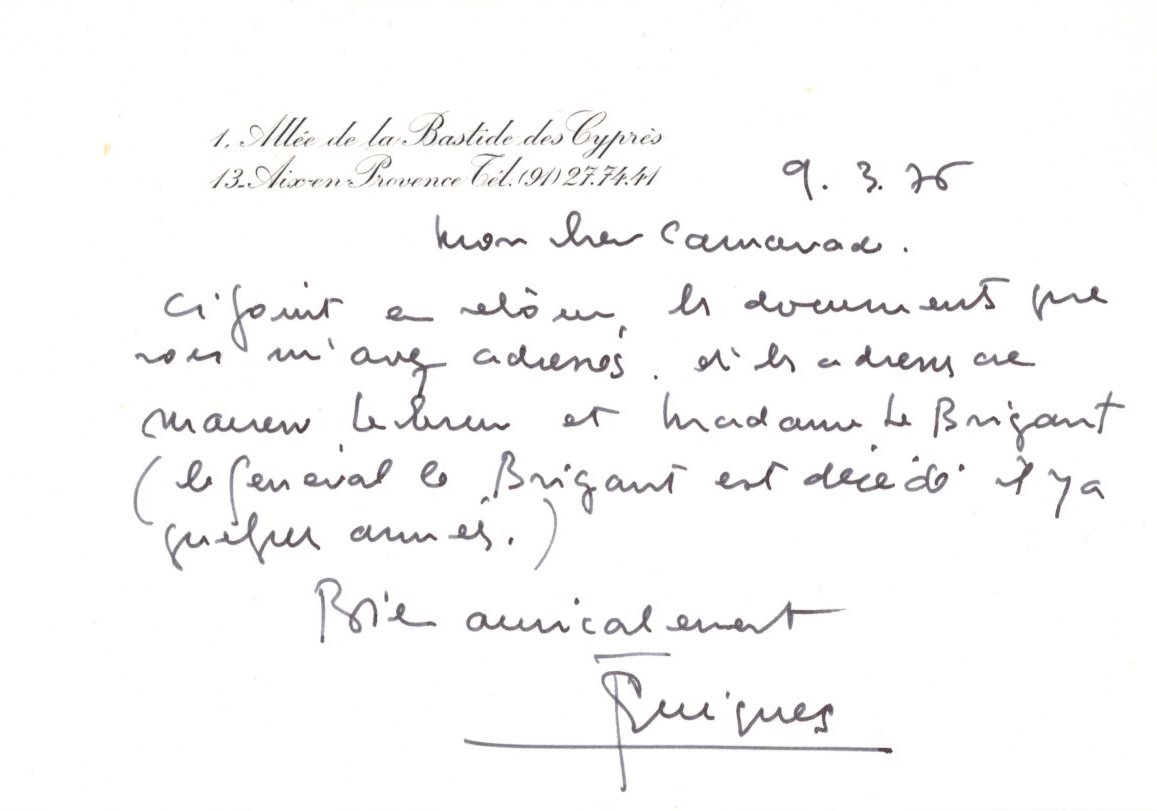 1. Allée de la Bastide des Cyprès
13. Aix-en-Provence Tél. (91) 27.74.41
9. 3. 76
Mon cher Camarade.
Ci joint en retour, les documents que
vous m'avez adressés. et les adresses de
et Madame Le Brigant
(le Général Le Brigant est décédé il y a
quelques années.)
Bien amicalement
Guigues